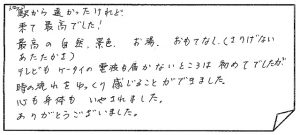 駅から遠かったけれど、
来て最高でした!
最高の自然、景色、お湯、おもてなし、(さりげない
あたたかさ)
テレビもケータイの電波も届かないところは初めてでしたが
時の流れをゆっくり感じることができました。
心も身体もいやされました。
ありがとうございました。